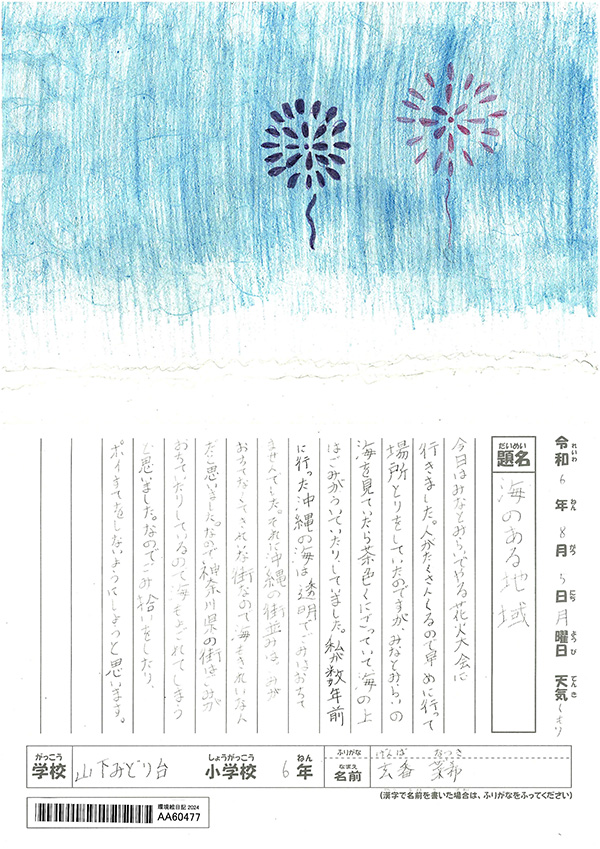 令和6年8月5日月曜日 天気 くもり
れいわ ねん がつ にち ようび てんき
だいめい
題名 海のある地域
今日はみなとみらいでやる花火大会に
行きました。人がたくさんくるので早めに行って
場所とりをしていたのですが、みなとみらいの
海を見ていたら茶色くにごっていて海の上
はごみがういていたり、していました。私が数年前
に行った沖縄の海は透明でごみはおちて
ませんでした。それに沖縄の街並みは、ごみが
おちてなくてきれいな街なので海もきれいなん
だと思いました。なので神奈川県の街はごみが
おちていたりしているので海もよごれてしまう
と思いました。なのでごみ拾いをしたり、
ポイすてをしないようにしようと思います。
がっこう しょうがっこう ねん ふりがな げんば なつき
学校 山下みどり台 小学校 6年 なまえ 名前 玄番 菜希
(漢字で名前を書いた場合は、ふりがなをふってください)
環境絵日記 2024
AA60477